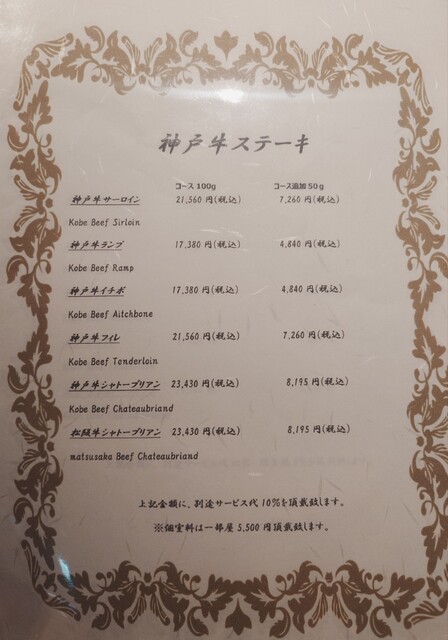 神戸牛ステーキ
コース 100g コース追加 50g
神戸牛サーロイン 21,560 円(税込) 7,260 円(税込)
Kobe Beef Sirloin
神戸牛ランプ 17,380 円(税込) 4,840 円(税込)
Kobe Beef Ramp
神戸牛イチボ 17,380 円(税込) 4,840 円(税込)
Kobe Beef Aitchbone
神戸牛フィレ 21,560 円(税込) 7,260 円(税込)
Kobe Beef Tenderloin
神戸牛シャトーブリアン 23,430 円(税込) 8,195 円(税込)
Kobe Beef Chateaubriand
松阪牛シャトーブリアン 23,430 円(税込) 8,195 円(税込)
matsusaka Beef Chateaubriand
上記金額に、別途サービス代 10%を頂戴致します。
※個室料は一部屋 5,500 円頂戴致します。